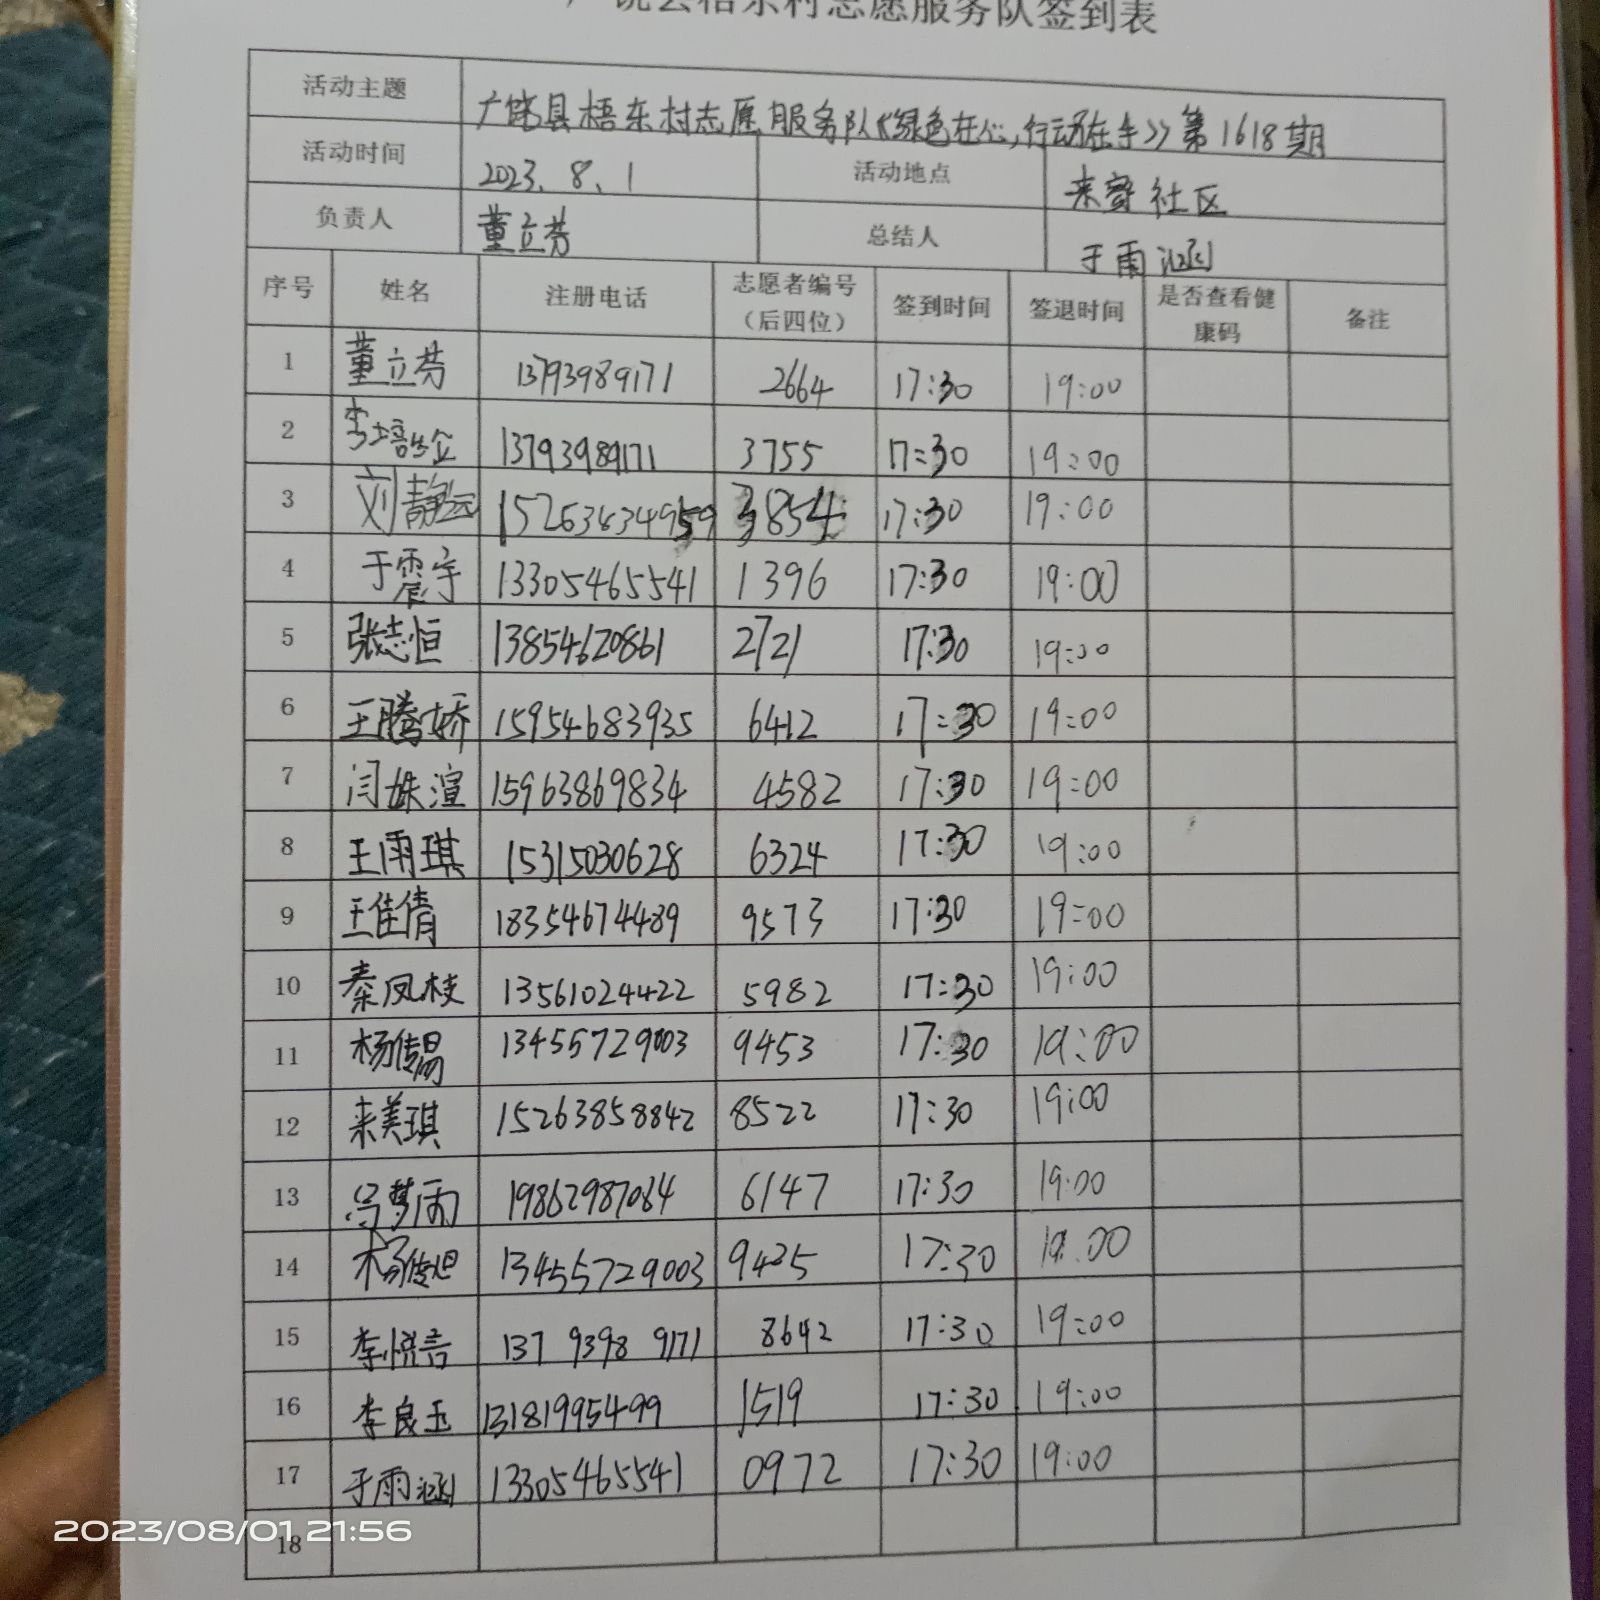 广饶县梧东村志愿服务队签到表
活动主题 广饶县梧东村志愿服务队《绿色在心,行动在手》第1618期
活动时间 2023.8.1 活动地点 来寳社区
负责人 董立芬 总结人 于雨涵
序号 姓名 注册电话 志愿者编号（后四位） 签到时间 签退时间 是否查看健康码 备注
1 董立芬 13793989171 2664 17:30 19:00
2 13793989171 3755 17:30 19:00
3 刘静远 3854 17:30 19:00
4 于震宇 13305465541 1396 17:30 19:00
5 张志恒 13854620861 2721 17:30 19:00
6 王腾娇 15954683935 6412 17:30 19:00
7 闫姝渲 15963869834 4582 17:30 19:00
8 王雨琪 15315030628 6324 17:30 19:00
9 王佳倩 18354674489 9573 17:30 19:00
10 秦凤枝 13561024422 5982 17:30 19:00
11 杨传勗 13455729003 9453 17:30 19:00
12 来美琪 15263858842 8522 17:30 19:00
13 梦雨 19862987084 6147 17:30 19:00
14 杨传旭 13455729003 9425 17:30 19:00
15 李悦言 137 9398 9171 8642 17:30 19:00
16 李良玉 13181995499 1519 17:30 19:00
17 于雨涵 13305465541 0972 17:30 19:00
18
2023/08/01 21:56